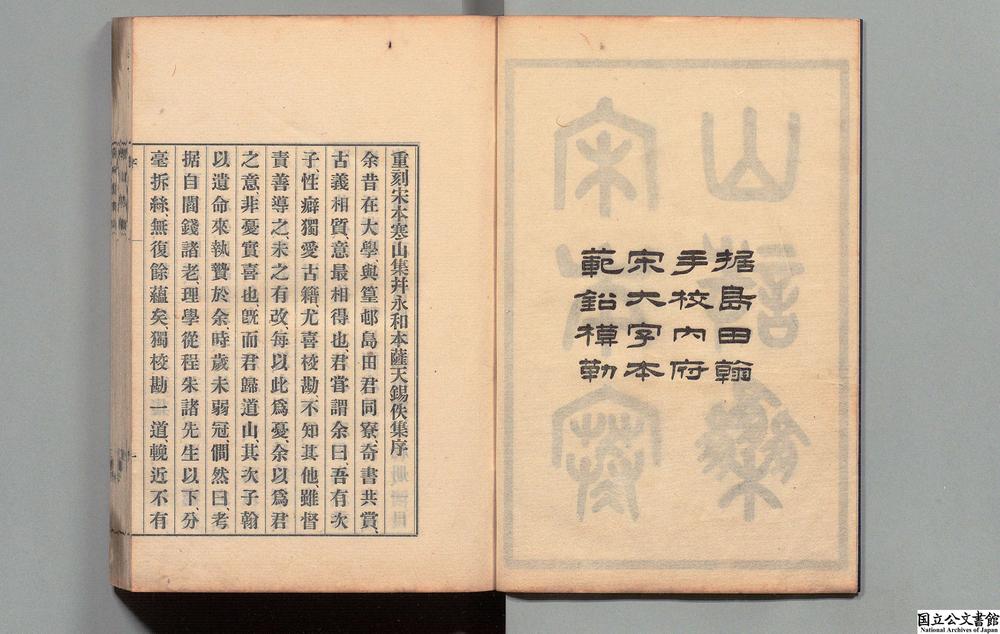 据島田翰
手校内府
宋大字本
範鉛槧勒
重刻宋本寒山集幷永和本薩天錫佚集序
余昔在大學與篁邨島田君同寮奇書共賞、
古義相質、意最相得也、君嘗謂余曰、吾有次
子、性癖獨愛古籍尤喜校勘、不知其他、雖督
責善導之、未之有改、每以此爲憂、余以爲君
之意、非憂實喜也、既而君歸道山、其次子翰
以遺命來執贄於余、時歲未弱冠、僩然曰、考
据自閻錢諸老、理學從程朱諸先生以下、分
毫拆絲、無復餘蘊矣、獨校勘一道、輓近不有
国立公文書館
National Archives of Japan